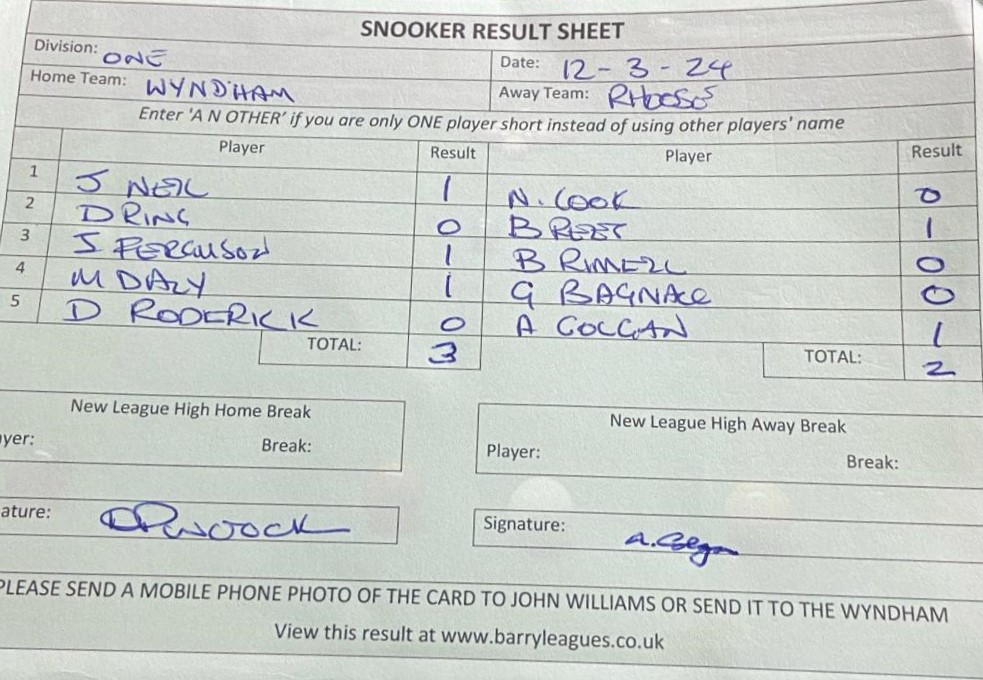 SNOOKER RESULT SHEET
Division: ONE Date: 12-3-24
Home Team: WYNDHAM Away Team: RHOOSE
Enter 'A N OTHER' if you are only ONE player short instead of using other players' name
Player Result Player Result
1 J NEIL 1 N. COOK 0
2 D RING 0 B REET 1
3 J FERGUSON 1 B RIMELL 0
4 M DALY 1 G BAGNALL 0
5 D RODERICK 0 A COLGAN 1
TOTAL: 3 TOTAL: 2
New League High Home Break New League High Away Break
yer: Break: Player: Break:
ature: Signature:
PLEASE SEND A MOBILE PHONE PHOTO OF THE CARD TO JOHN WILLIAMS OR SEND IT TO THE WYNDHAM
View this result at www.barryleagues.co.uk